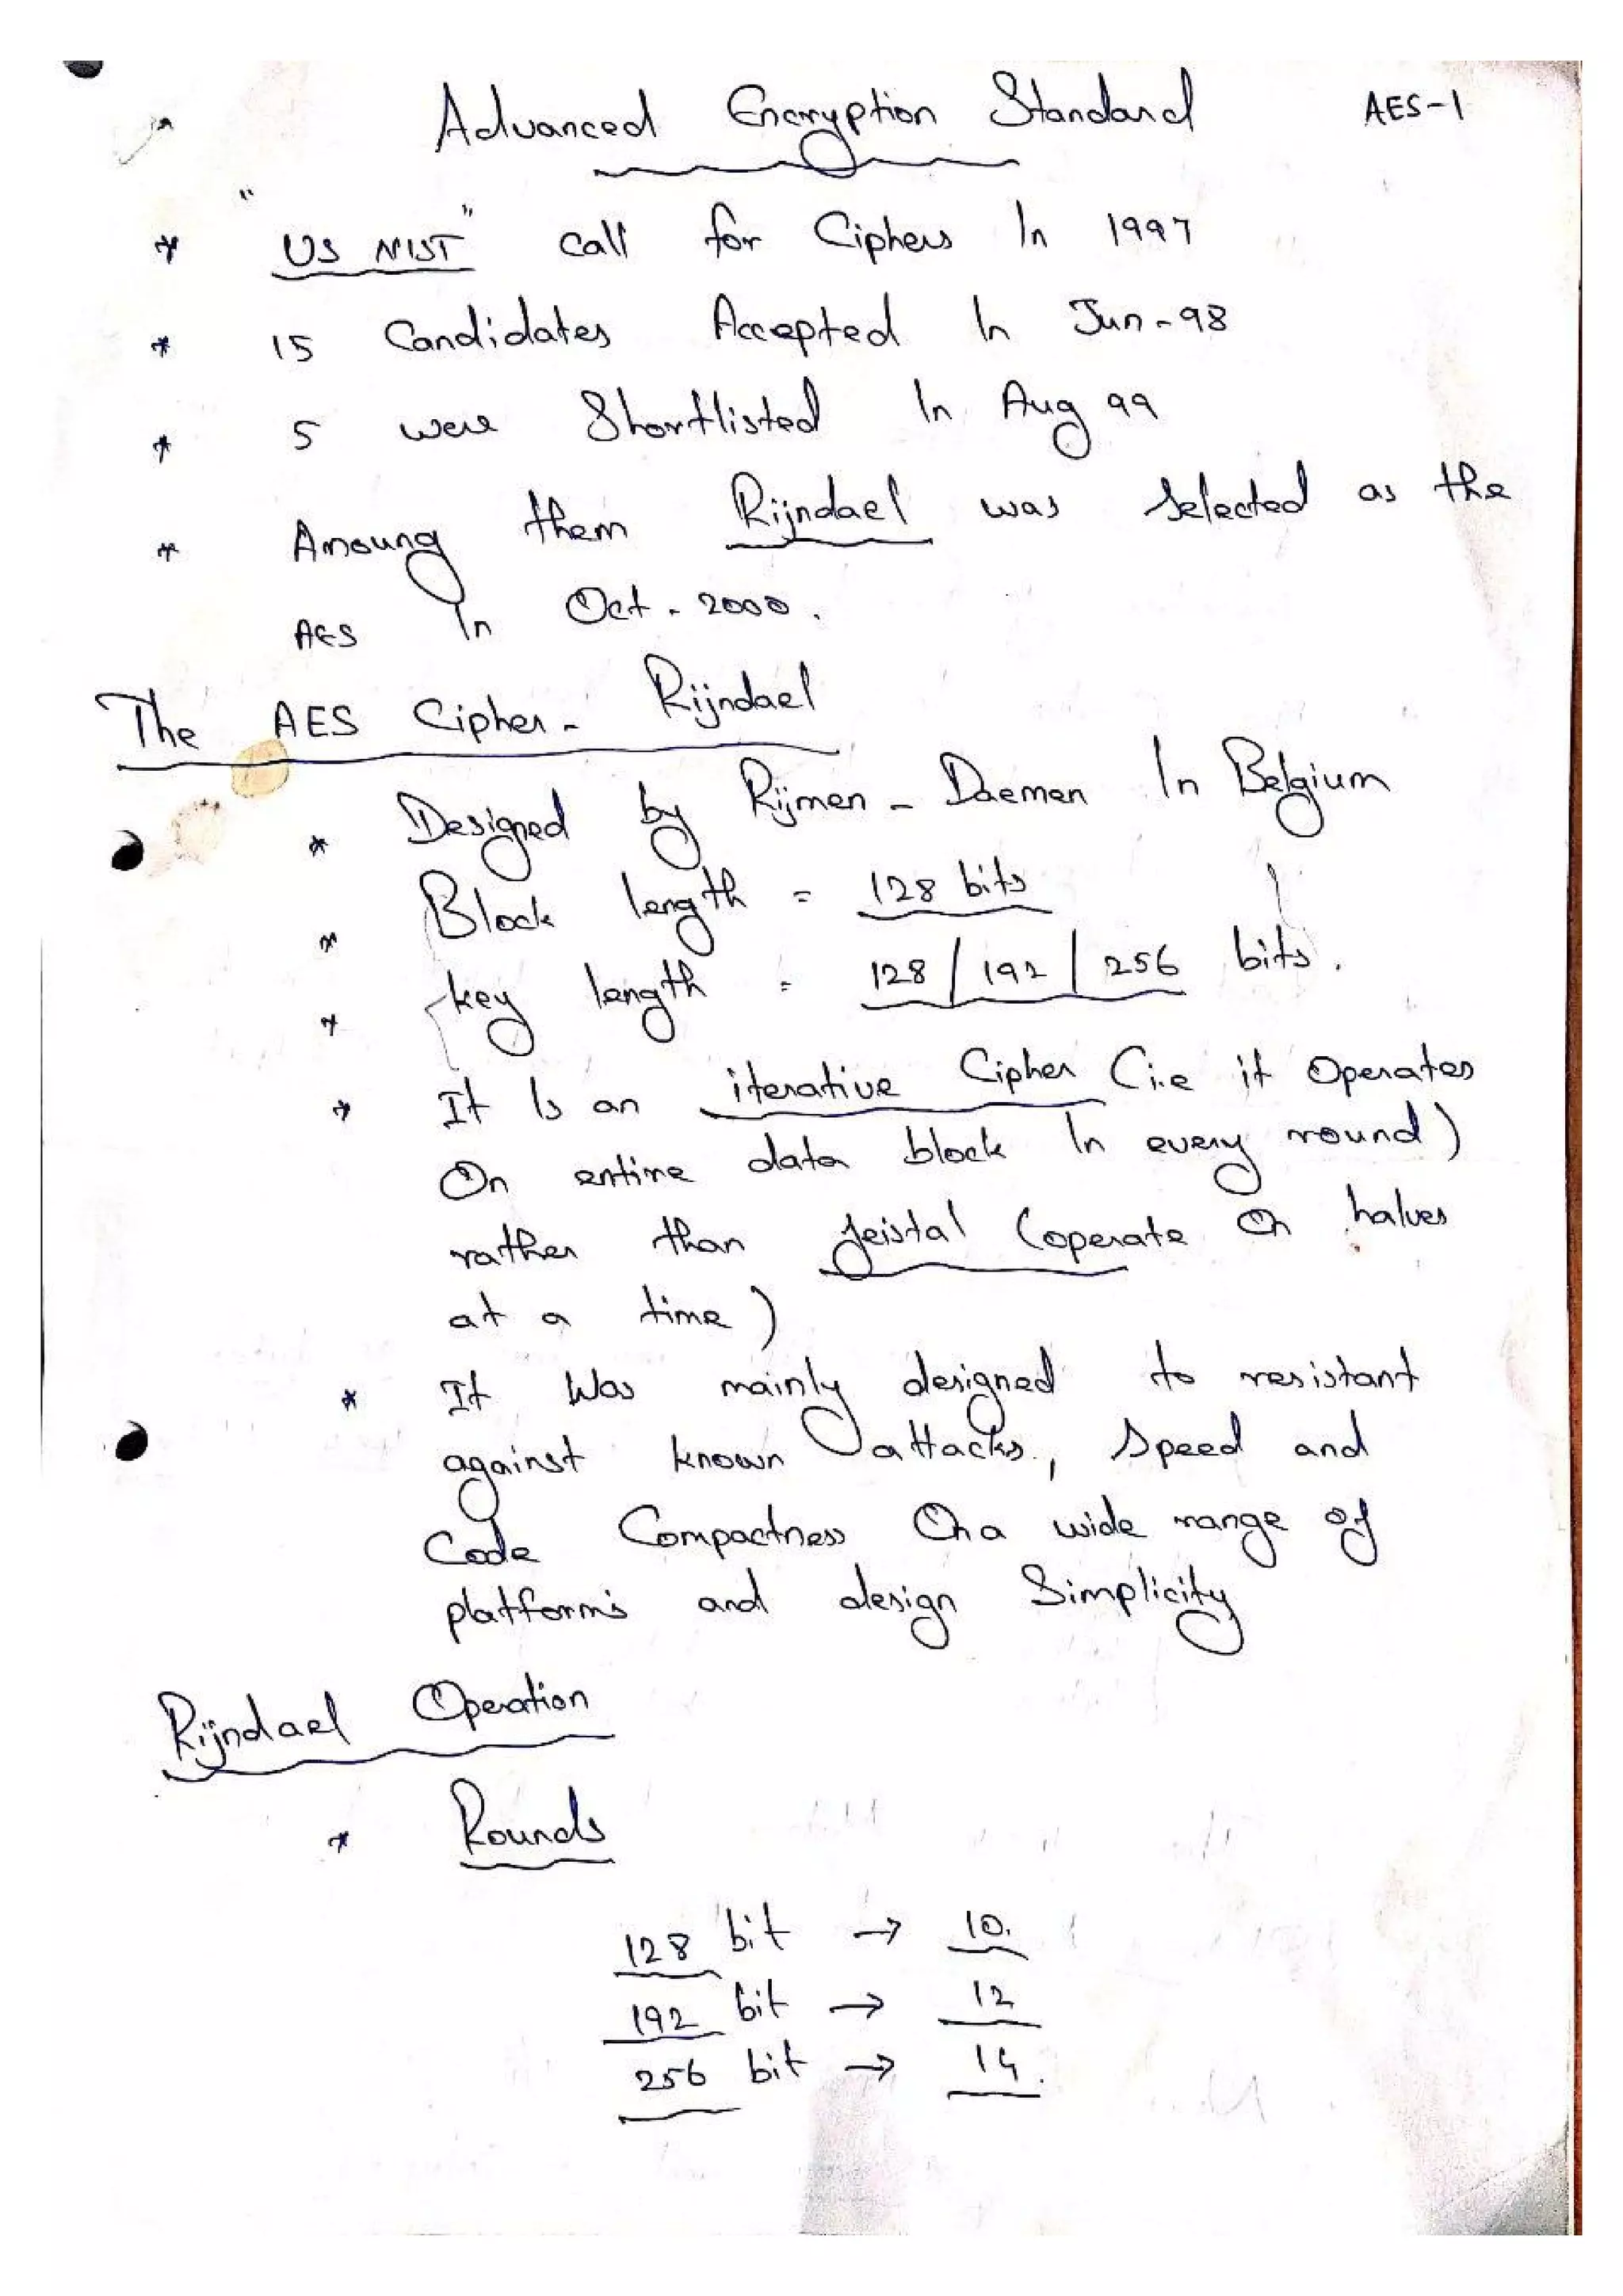 Advanced Encryption Standard AES-1
* "US NIST" call for Ciphers In 1997
* 15 Candidates Accepted In Jun-98
* 5 were Shortlisted In Aug 99
* Amoung them Rijndael was Selected as the
AES In Oct - 2000.
The AES Cipher - Rijndael
* Designed by Rijmen - Daemen In Belgium
* Block length = 128 bits
* key length = 128 / 192 / 256 bits.
* It Is an iterative Cipher (i.e it Operates
On entire data block In every round)
rather than feistal (operate On halves
at a time)
* It Was mainly designed to resistant
against known attacks, Speed and
Code Compactness On a wide range of
platform's and design Simplicity
Rijndael Operation
* Rounds
128 bit → 10.
192 bit → 12
256 bit → 14.